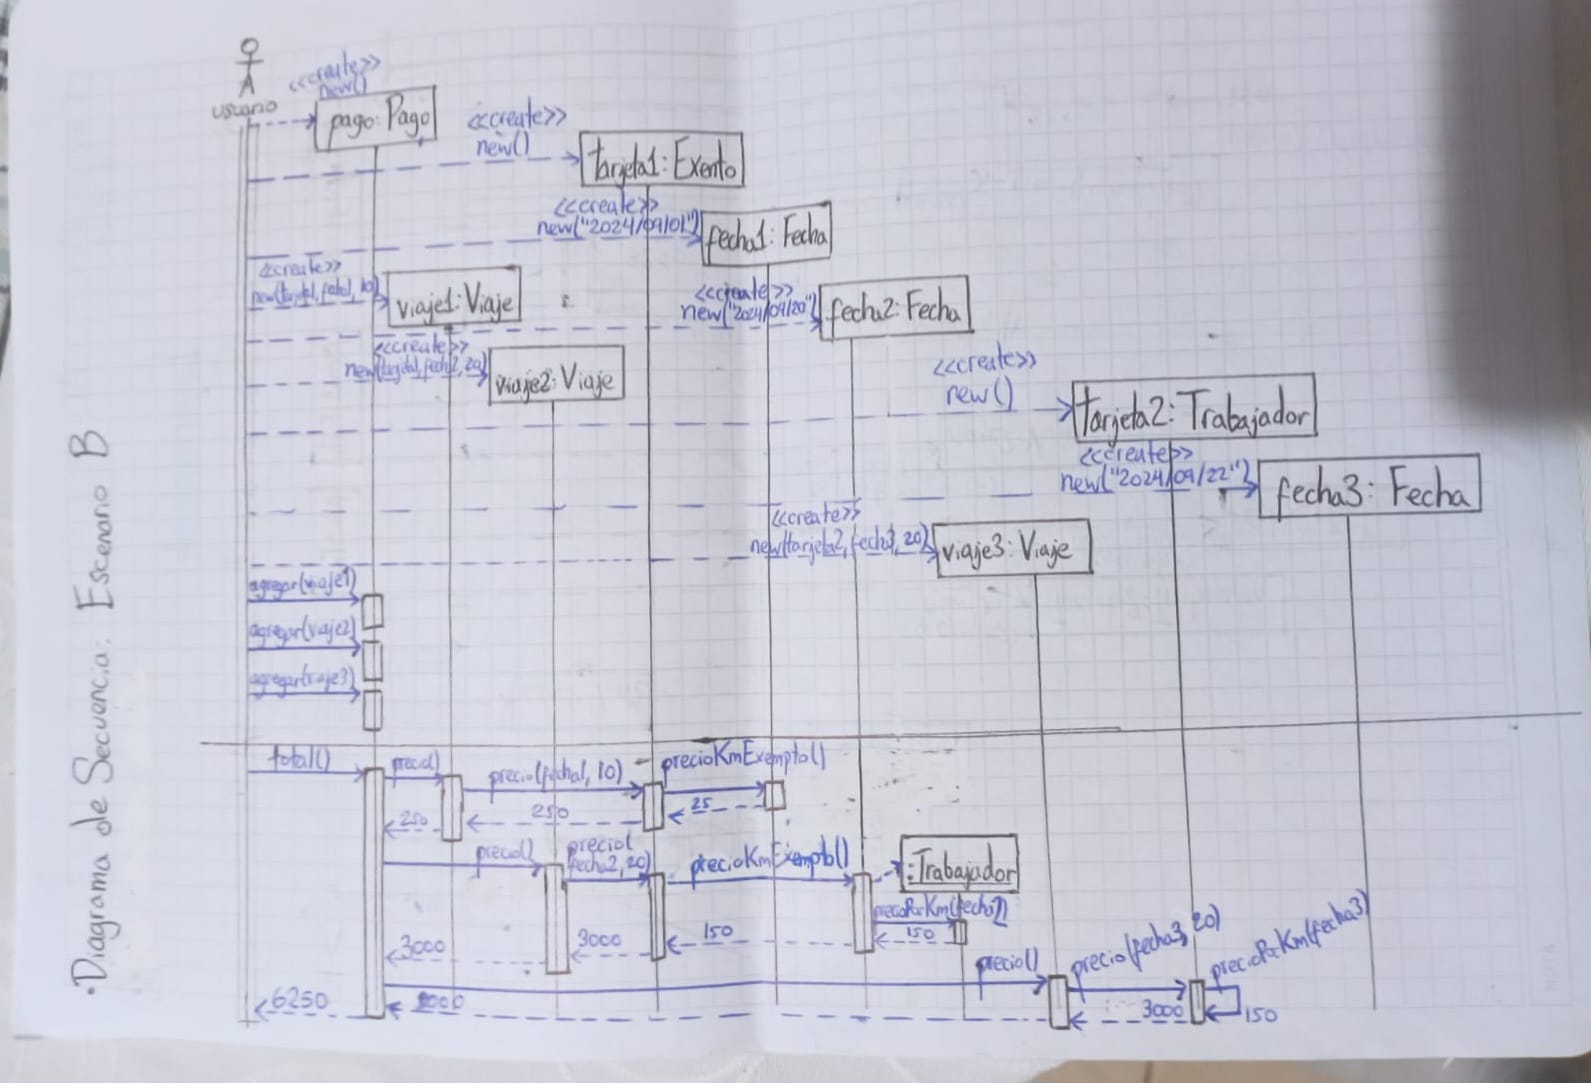 •Diagrama de Secuencia: Escenario B
usuario
<<create>>
new()
pago: Pago
<<create>>
new()
tarjeta1: Exento
<<create>>
new("2024/09/01")
fecha1: Fecha
<<create>>
new(tarjeta1, fecha1, 10)
viaje1: Viaje
<<create>>
new("2024/09/20")
fecha2: Fecha
<<create>>
new(tarjeta1, fecha2, 20)
viaje2: Viaje
<<create>>
new()
tarjeta2: Trabajador
<<create>>
new("2024/09/22")
fecha3: Fecha
<<create>>
new(tarjeta2, fecha3, 20)
viaje3: Viaje
agregar(viaje1)
agregar(viaje2)
agregar(viaje3)
total()
precio()
precio(fecha1, 10)
precioKmExempto()
250
250
25
precio()
precio(
fecha2, 20)
precioKmExempto()
:Trabajador
precioPorKm(fecha2)
150
150
3000
3000
precio()
precio(fecha3, 20)
precioPorKm(fecha3)
150
3000
6250